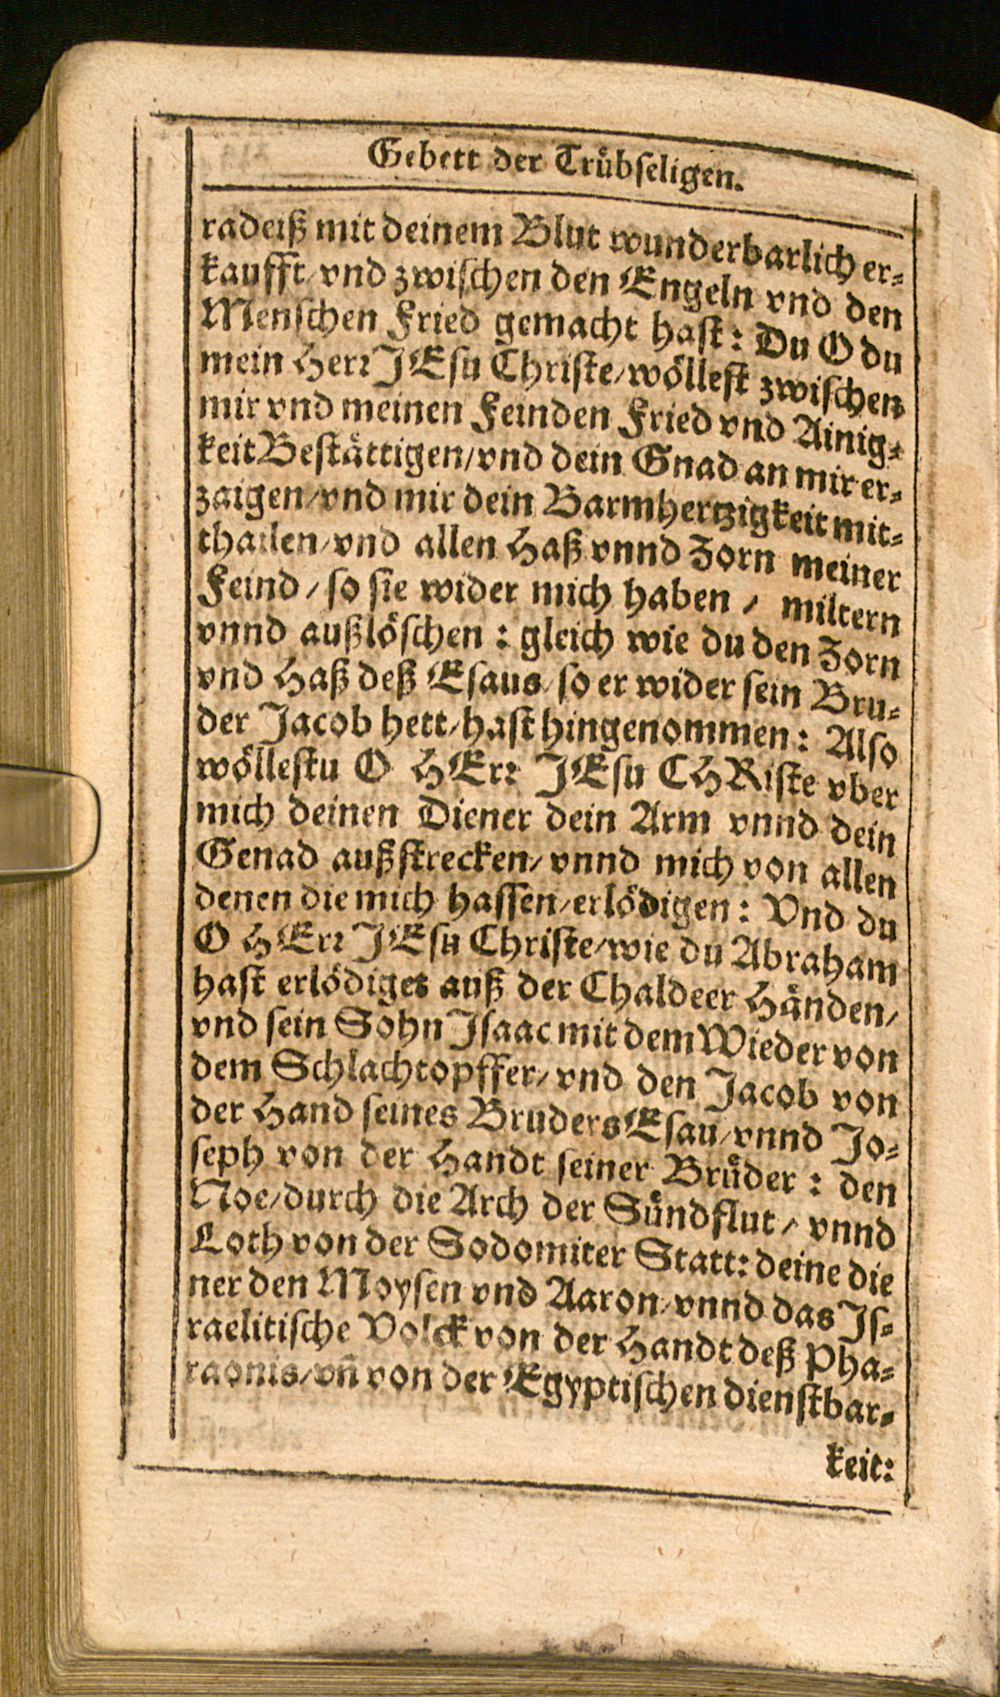 Gebett der Trübseligen.
radeiß mit deinem Blut wunderbarlich er-
kaufft/ vnd zwischen den Engeln vnd den
Menschen Fried gemacht hast: Du O du
mein Herr JEsu Christe/ wöllest zwischen
mir vnd meinen Feinden Fried vnd Ainig-
keit Bestättigen/ vnd dein Gnad an mir er-
zaigen/ vnd mir dein Barmhertzigkeit mit-
thailen/ vnd allen Haß vnnd Zorn meiner
Feind / so sie wider mich haben / miltern
vnnd außlöschen : gleich wie du den Zorn
vnd Haß deß Esaus/ so er wider sein Bru-
der Jacob hett/ hast hingenommen: Also
wöllestu O HErr JEsu CHRiste vber
mich deinen Diener dein Arm vnnd dein
Genad außstrecken/ vnnd mich von allen
denen die mich hassen/ erlödigen: Vnd du
O HErr JEsu Christe/ wie du Abraham
hast erlödiget auß der Chaldeer Händen/
vnd sein Sohn Isaac mit dem Wieder von
dem Schlachtopffer/ vnd den Jacob von
der Hand seines Bruders Esau/ vnnd Jo-
seph von der Handt seiner Brüder : den
Noe/ durch die Arch der Sündflut / vnnd
Loth von der Sodomiter Statt: deine die
ner den Moysen vnd Aaron/ vnnd das Is-
raelitische Volck von der Handt deß Pha-
raonis/ vñ von der Egyptischen dienstbar-
keit: